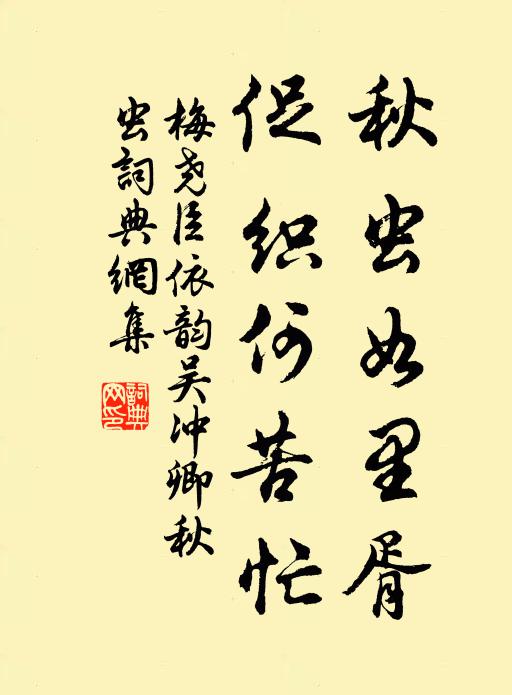 秋虫如里胥
促织何苦忙
梅尧臣依韵吴冲卿秋
虫詞典網集
詞典
网印